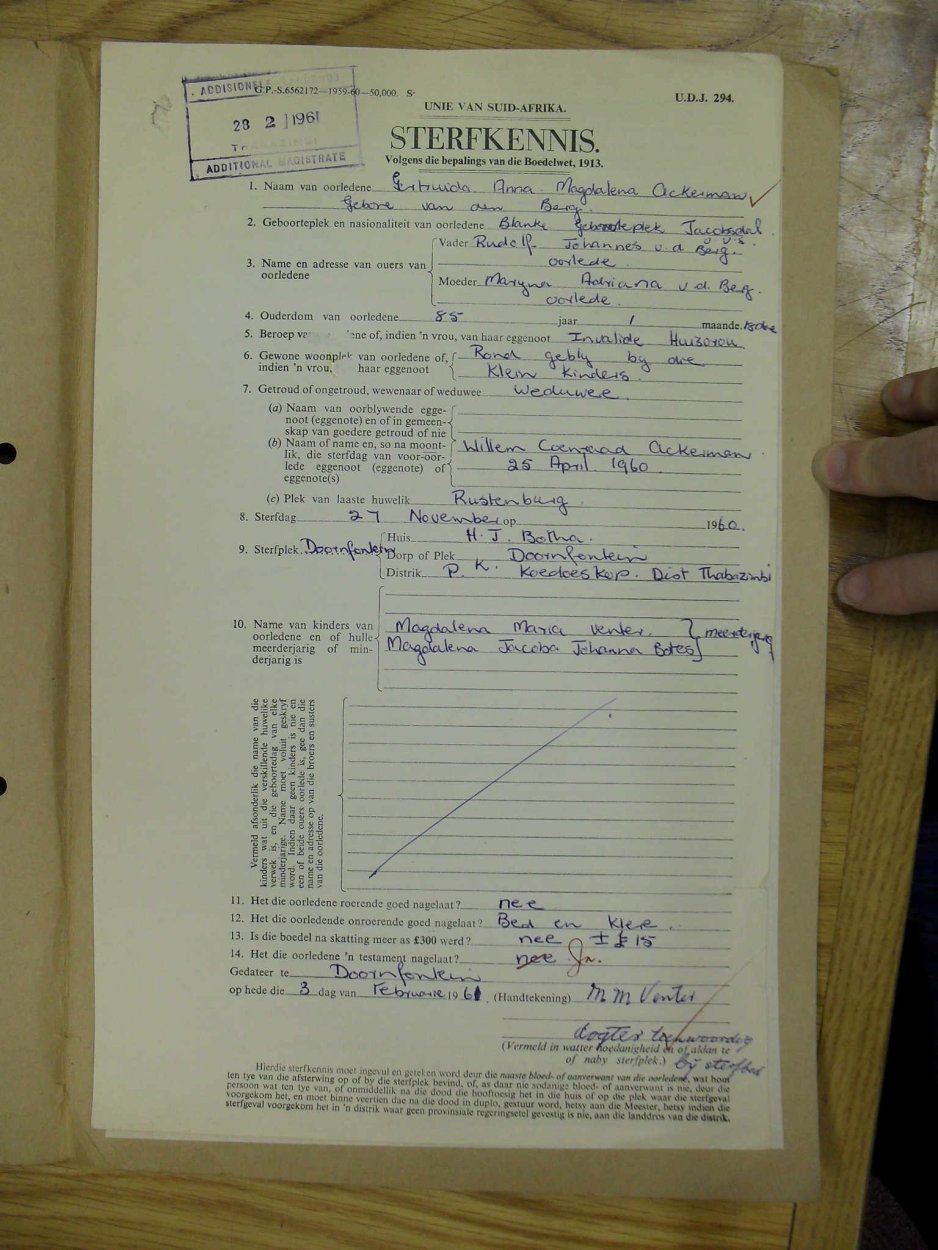 ADDISIONELE
28 2 1961
ADDITIONAL MAGISTRATE
G.P.-S.6562172—1959-60—50,000. S
U.D.J. 294.
UNIE VAN SUID-AFRIKA.
STERFKENNIS.
Volgens die bepalings van die Boedelwet, 1913.
1. Naam van oorledene Gertruida Anna Magdalena Ackerman
Gebore van den Berg.
2. Geboorteplek en nasionaliteit van oorledene Blanke Geboorteplek Jacobsdal
O.V.S.
3. Name en adresse van ouers van oorledene
Vader Rudolf Johannes v.d Berg.
oorlede.
Moeder Maryna Adriana v.d. Berg.
oorlede.
4. Ouderdom van oorledene 85 jaar 1 maande.
5. Beroep ene of, indien 'n vrou, van haar eggenoot Invalide Huisvrou
6. Gewone woonplek van oorledene of, Rond gebly by die
indien 'n vrou, haar eggenoot Klein Kinders.
7. Getroud of ongetroud, wewenaar of weduwee Weduwee
(a) Naam van oorblywende egge-
noot (eggenote) en of in gemeen-
skap van goedere getroud of nie
(b) Naam of name en, so na moont- Willem Coenraad Ackerman.
lik, die sterfdag van voor-oor- 25 April 1960
lede eggenoot (eggenote) of
eggenote(s)
(c) Plek van laaste huwelik Rustenburg
8. Sterfdag 27 November op 1960.
9. Sterfplek Doornfontein
Huis H. J. Botha.
Dorp of Plek Doornfontein
Distrik P. K. Koedoeskop. Dist Thabazimbi
10. Name van kinders van Magdalena Maria Venter. } meerderjarig
oorledene en of hulle Magdalena Jacoba Johanna Botes
meerderjarig of min-
derjarig is
Vermeld afsonderlik die name van die
kinders wat uit die verskillende huwelike
verwek is, en die geboortedag van elke
minderjarige. Name moet voluit geskryf
word. Indien daar geen kinders is nie en
een of beide ouers oorlede is, gee dan die
name en adresse op van die broers en susters
van die oorledene.
11. Het die oorledene roerende goed nagelaat? nee
12. Het die oorledende onroerende goed nagelaat? Bed en klere.
13. Is die boedel na skatting meer as £300 werd? nee ± £15
14. Het die oorledene 'n testament nagelaat? nee Ja.
Gedateer te Doornfontein
op hede die 3 dag van Februarie 1961. (Handtekening) M M Venter
dogter teenwoordig
(Vermeld in watter hoedanigheid en of aldan te
of naby sterfplek.) by sterfbed
Hierdie sterfkennis moet ingevul en geteken word deur die naaste bloed- of aanverwant van die oorledene, wat hom
ten tye van die afsterwing op of by die sterfplek bevind, of, as daar nie sodanige bloed- of aanverwant is nie, deur die
persoon wat ten tye van, of onmiddellik na die dood die hooftoesig het in die huis of op die plek waar die sterfgeval
voorgekom het, en moet binne veertien dae na die dood in duplo, gestuur word, hetsy aan die Meester, hetsy indien die
sterfgeval voorgekom het in 'n distrik waar geen provinsiale regeringsetel gevestig is nie, aan die landdros van die distrik.